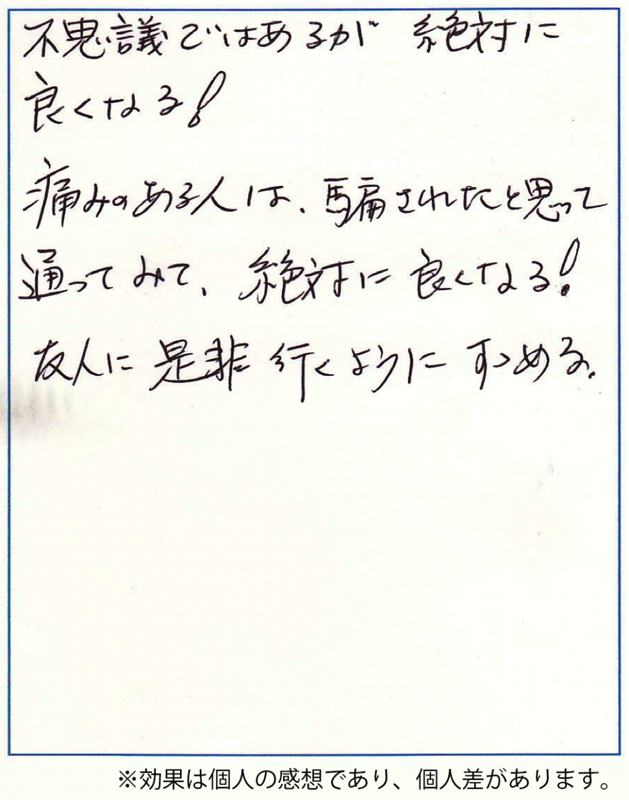 不思議ではあるが 絶対に
良くなる!
痛みのある人は、騙されたと思って
通ってみて、絶対に良くなる!
友人に是非行くようにすゝめる。
※効果は個人の感想であり、個人差があります。